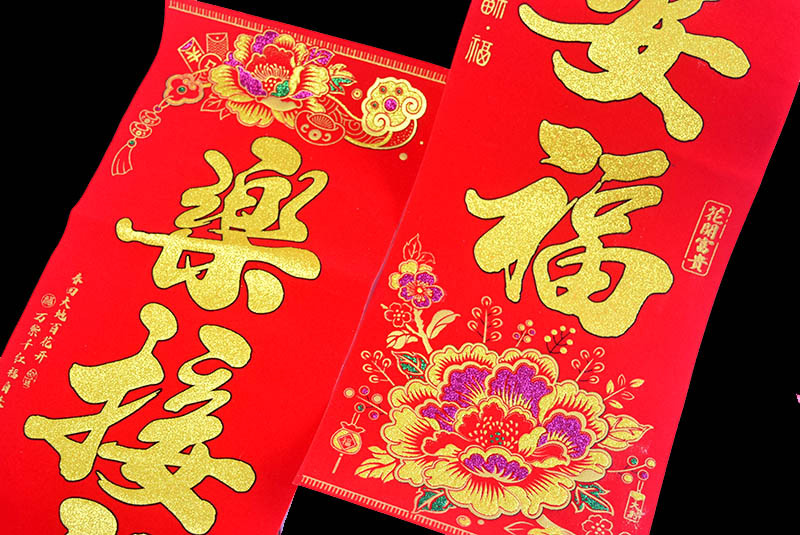 樂接
春回大地百花开
万紫千红福自来
安福
花開富貴
福